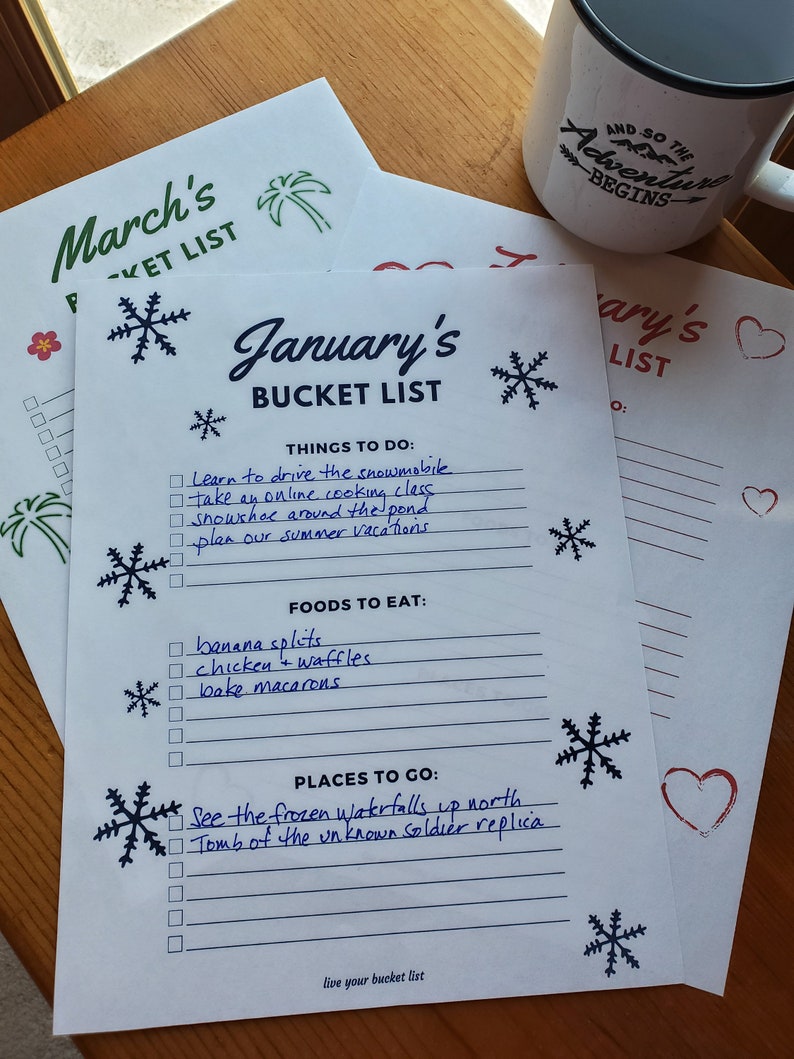 AND SO THE
Adventure
BEGINS
March's
BUCKET LIST
uary's
LIST
O:
January's
BUCKET LIST
THINGS TO DO:
Learn to drive the snowmobile
take an online cooking class
snowshoe around the pond
plan our summer vacations
FOODS TO EAT:
banana splits
chicken + waffles
bake macarons
PLACES TO GO:
See the frozen waterfalls up north
Tomb of the unknown soldier replica
live your bucket list